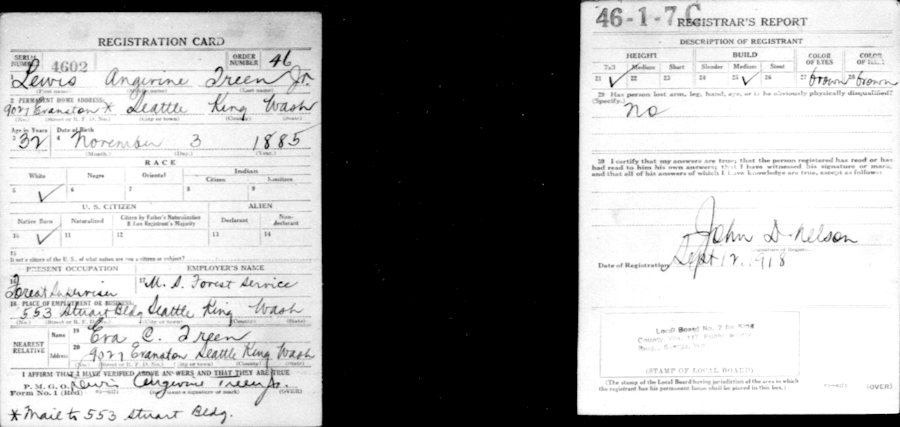 REGISTRATION CARD
SERIAL NUMBER 4602 ORDER NUMBER 46
1 Lewis Angivine Treen Jr.
(First name) (Middle name) (Last name)
2 PERMANENT HOME ADDRESS:
9027 Evanston * Seattle King Wash
(No.) (Street or R. F. D. No.) (City or town) (County) (State)
Age in Years Date of Birth
3 32 4 November 3 1885
(Month.) (Day.) (Year.)
RACE
White Negro Oriental Indian
Citizen Noncitizen
5 ✓ 6 7 8 9
U. S. CITIZEN ALIEN
Native Born Naturalized Citizen by Father's Naturalization Before Registrant's Majority Declarant Non-declarant
10 ✓ 11 12 13 14
15
If not a citizen of the U. S., of what nation are you a citizen or subject?
PRESENT OCCUPATION EMPLOYER'S NAME
16 Forest Supervisor 17 U. S. Forest Service
18 PLACE OF EMPLOYMENT OR BUSINESS:
553 Stuart Bldg Seattle King Wash
(No.) (Street or R. F. D. No.) (City or town) (County) (State)
NEAREST RELATIVE
Name 19 Eva C. Treen
Address 20 9027 Evanston Seattle King Wash
(No.) (Street or R. F. D. No.) (City or town) (County) (State)
I AFFIRM THAT I HAVE VERIFIED ABOVE ANSWERS AND THAT THEY ARE TRUE
P. M. G. O.
Form No. 1 (Red) Lewis Angivine Treen Jr.
(Registrant's signature or mark) (OVER)
* Mail to 553 Stuart Bldg.
46-1-7 C
REGISTRAR'S REPORT
DESCRIPTION OF REGISTRANT
HEIGHT BUILD COLOR OF EYES COLOR OF HAIR
Tall Medium Short Slender Medium Stout
21 ✓ 22 23 24 25 ✓ 26 27 brown 28 brown
29 Has person lost arm, leg, hand, eye, or is he obviously physically disqualified?
(Specify.)
No
30 I certify that my answers are true; that the person registered has read or has
had read to him his own answers; that I have witnessed his signature or mark,
and that all of his answers of which I have knowledge are true, except as follows:
John D. Nelson
(Signature of Registrar)
Date of Registration Sept 12, 1918
Local Board No. 7 for
County
(STAMP OF LOCAL BOARD)
(The stamp of the Local Board having jurisdiction of the area in which
the registrant has his permanent home shall be placed in this box.)
(OVER)